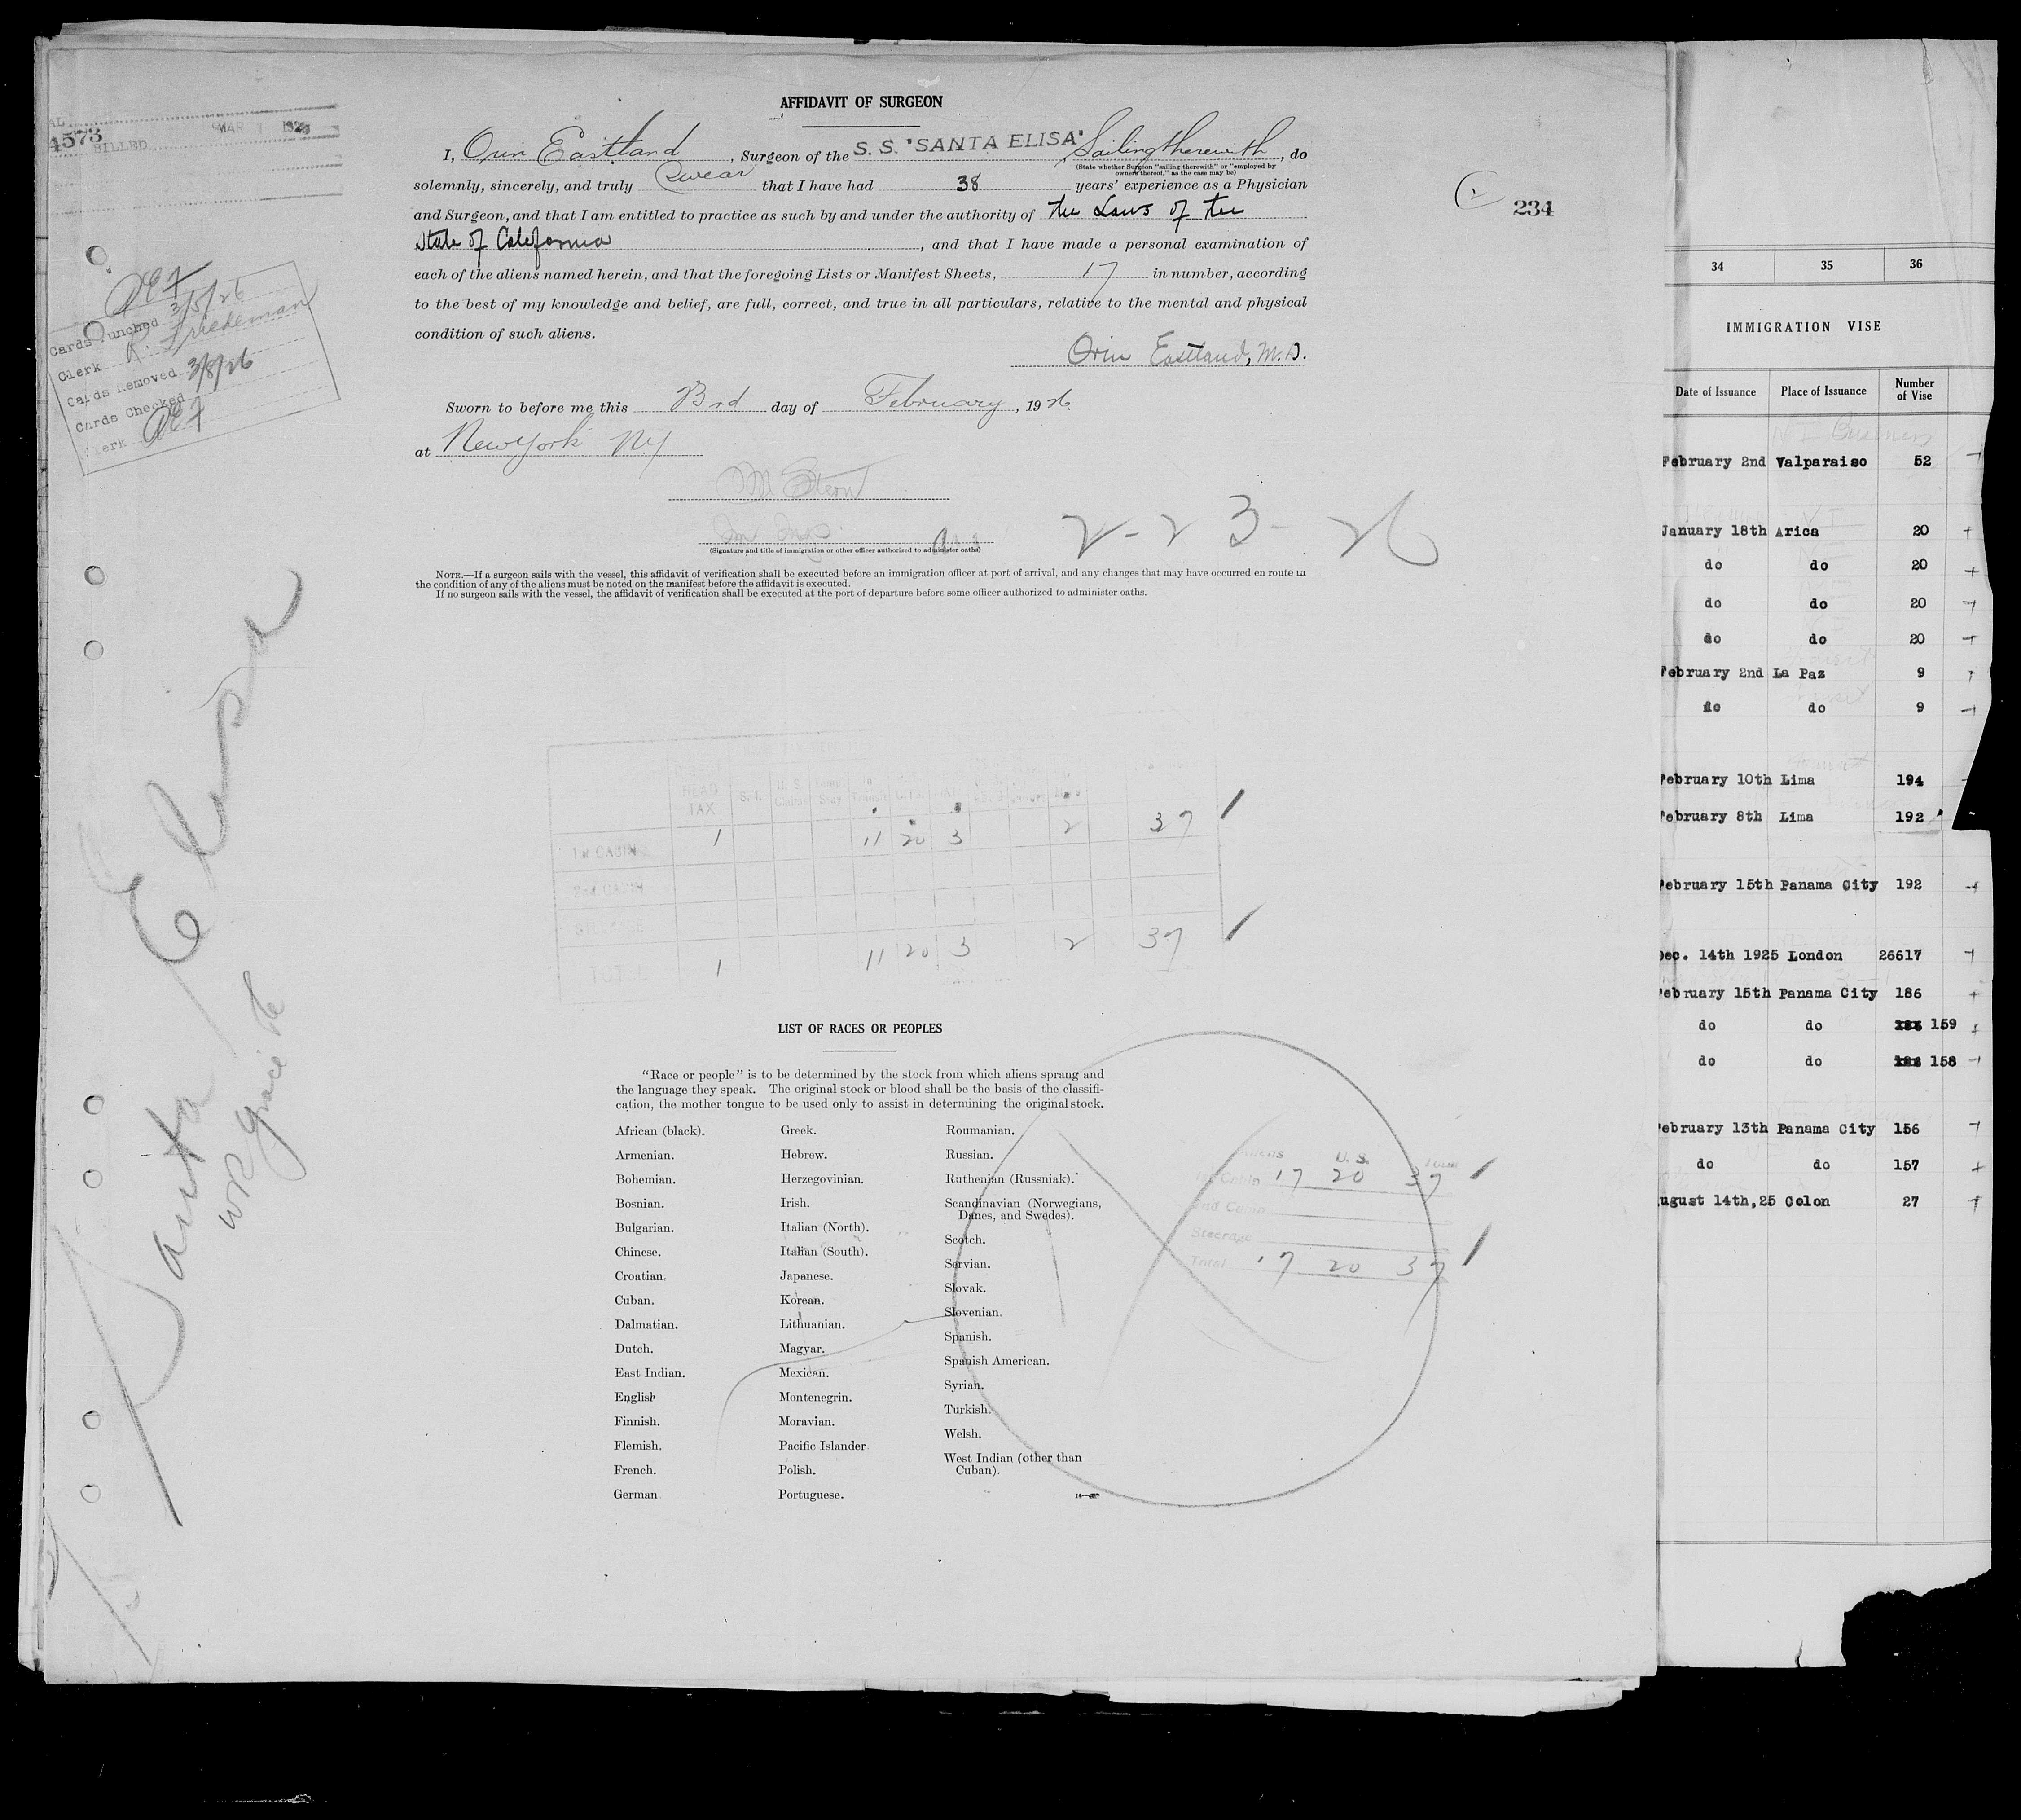 AFFIDAVIT OF SURGEON
I, Orin Eastland, Surgeon of the S. S. "SANTA ELISA", Sailing therewith, do
(State whether Surgeon "sailing therewith" or "employed by
owners thereof," as the case may be)
solemnly, sincerely, and truly swear that I have had 38 years' experience as a Physician
and Surgeon, and that I am entitled to practice as such by and under the authority of the Laws of the
State of California, and that I have made a personal examination of
each of the aliens named herein, and that the foregoing Lists or Manifest Sheets, 17 in number, according
to the best of my knowledge and belief, are full, correct, and true in all particulars, relative to the mental and physical
condition of such aliens.
Orin Eastland, M.D.
Sworn to before me this 23rd day of February, 1926.
at New York NY
M Stern
(Signature and title of immigration or other officer authorized to administer oaths)
2-23-26
NOTE.—If a surgeon sails with the vessel, this affidavit of verification shall be executed before an immigration officer at port of arrival, and any changes that may have occurred en route in
the condition of any of the aliens must be noted on the manifest before the affidavit is executed.
If no surgeon sails with the vessel, the affidavit of verification shall be executed at the port of departure before some officer authorized to administer oaths.
4573
BILLED MAR 1
2 234
Cards Punched 3/5/26
Clerk R. Friedeman
Cards Removed 3/8/26
Cards Checked
Clerk
Santa Elisa
WR Grace
HEAD
TAX S. I. U. S.
1st CABIN 1 11 20 3 2 37
2nd CABIN
TOTAL 1 11 20 3 2 37
LIST OF RACES OR PEOPLES
"Race or people" is to be determined by the stock from which aliens sprang and
the language they speak. The original stock or blood shall be the basis of the classifi-
cation, the mother tongue to be used only to assist in determining the original stock.
African (black).
Armenian.
Bohemian.
Bosnian.
Bulgarian.
Chinese.
Croatian.
Cuban.
Dalmatian.
Dutch.
East Indian.
English
Finnish.
Flemish.
French.
German
Greek.
Hebrew.
Herzegovinian.
Irish.
Italian (North).
Italian (South).
Japanese.
Korean.
Lithuanian.
Magyar.
Mexican.
Montenegrin.
Moravian.
Pacific Islander
Polish.
Portuguese.
Roumanian.
Russian.
Ruthenian (Russniak).
Scandinavian (Norwegians,
Danes, and Swedes).
Scotch.
Servian.
Slovak.
Slovenian.
Spanish.
Spanish American.
Syrian.
Turkish.
Welsh.
West Indian (other than
Cuban).
U. S.
Cabin 17 20 37
2nd Cabin
Steerage
Total 17 20 37
34 35 36
IMMIGRATION VISE
Date of Issuance Place of Issuance Number
of Vise
February 2nd Valparaiso 52
January 18th Arica 20
do do 20
do do 20
do do 20
February 2nd La Paz 9
do do 9
February 10th Lima 194
February 8th Lima 192
February 15th Panama City 192
Dec. 14th 1925 London 26617
February 15th Panama City 186
do do 159
do do 158
February 13th Panama City 156
do do 157
August 14th, 25 Colon 27